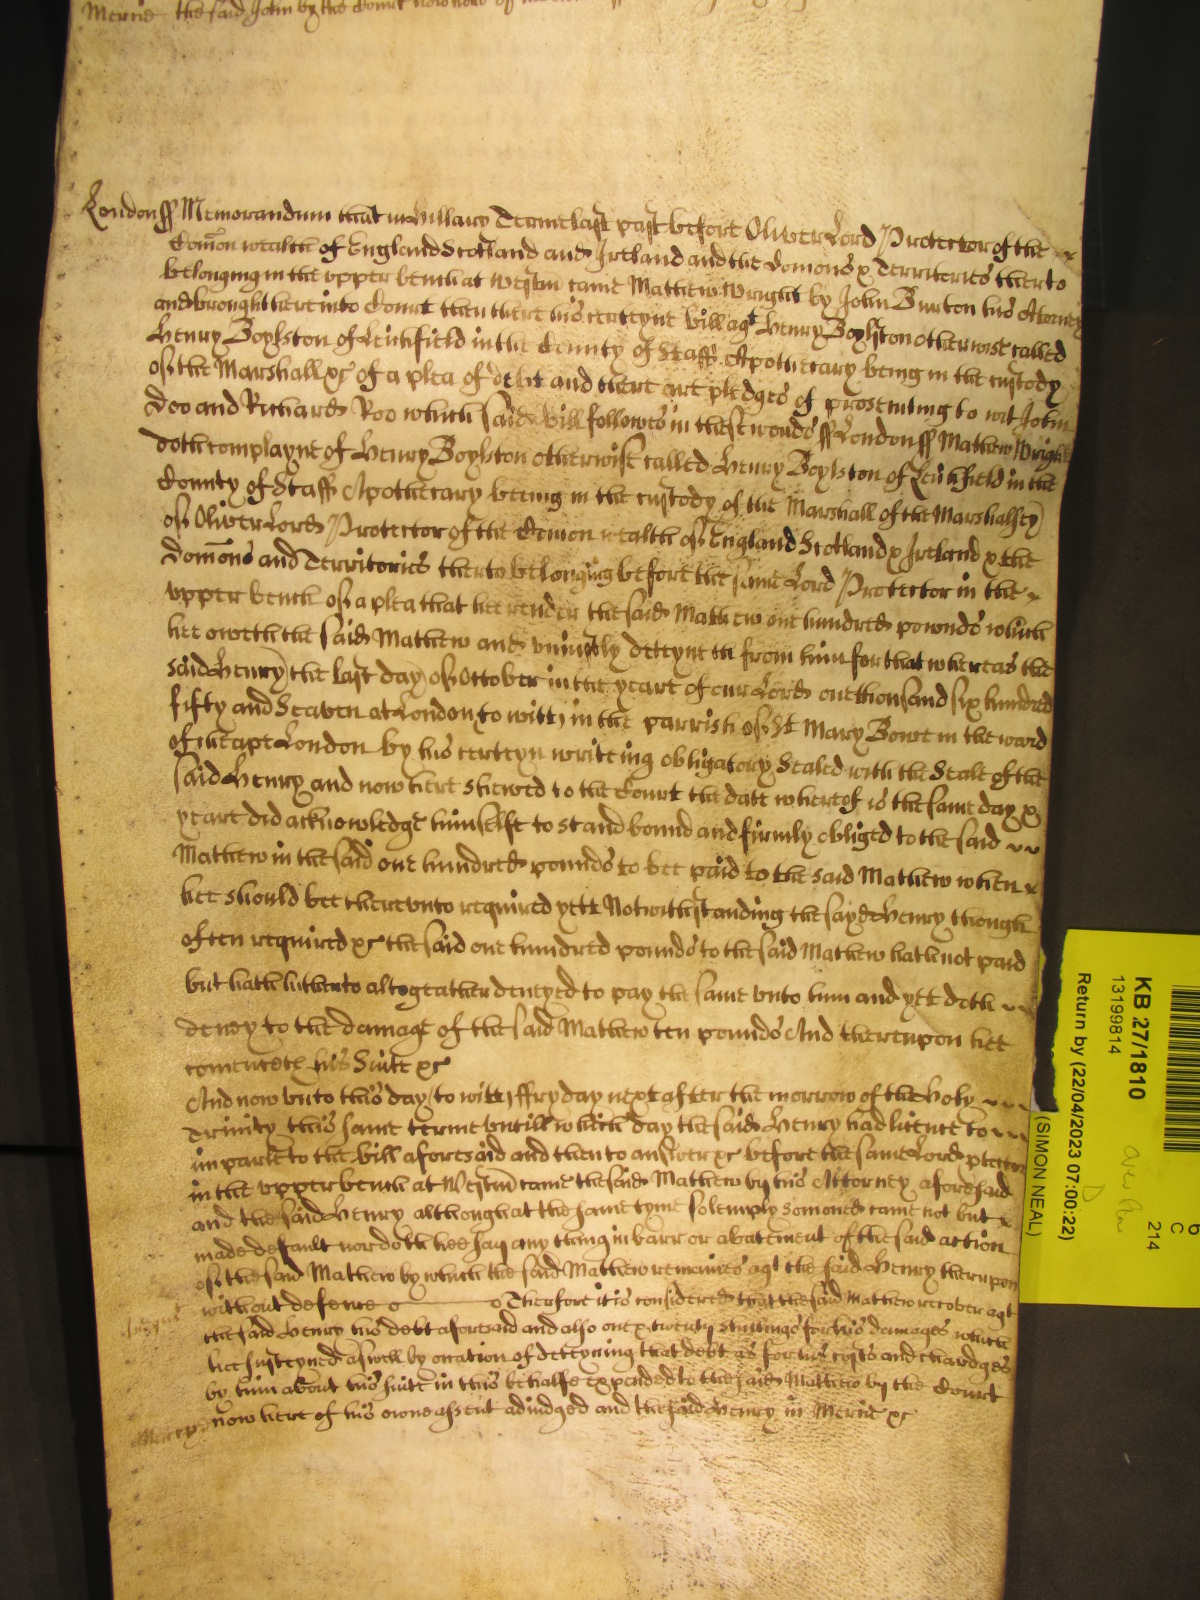 Mercie the said John by the Court now here of
London ss Memorandum that in Hillary Terme last past before Oliver Lord Protector of the
Comon wealth of England Scotland and Ireland and the Domons & Territories therto
belonging in the upper bench at Westm came Mathew Wright by John Burton his Attorney
and brought here into Court then there his certeyne bill agt Henry Boylston otherwise called
Henry Boylston of Leichfield in the County of Staff Apothecary being in the custody
of the Marshall &c of a plea of debt and there are pledges of prosecuting to wit John
Doo and Richard Roo which said bill followes in these words ss London ss Mathew Wright
doth complayne of Henry Boylston otherwise called Henry Boylston of Leichfield in the
County of Staff Apothecary beeing in the custody of the Marshall of the Marshalsey
of Oliver Lord Protector of the Comon wealth of England Scotland & Ireland & the
Domons and Territories therto belonging before the same Lord Protector in the
upper bench of a plea that hee render the said Mathew one hundred pownds which
hee oweth the said Mathew and uniustly deteyneth from him for that whereas the
said Henry the last day of October in the yeare of our Lord one thousand six hundred
fifty and Seaven at London to witt in the parrish of St Mary Bowe in the ward
of Cheape London by his certeyn writeing obligatory Sealed with the Seale of the
said Henry and now here shewed to the Court the date whereof is the same day &
yeare did acknowledge himselfe to stand bound and firmly obliged to the said
Mathew in the said one hundred pounds to bee paid to the said Mathew when
hee should bee thereunto required yett Notwithstanding the sayd Henry though
often required &c the said one hundred pounds to the said Mathew hath not paid
but hath hitherto altogeather denyed to pay the same unto him and yett doth
deney to the damage of the said Mathew ten pounds And thereupon hee
his Suite &c
And now unto this day to witt ffryday next after the morrow of the Holy
Trinity this same terme untill which day the said Henry had licence to
imparle to the bill aforesaid and then to answer &c before the same Lord
in the upper bench at Westm came the said Mathew by his Attorney aforesaid
and the said Henry although at the same tyme solemply somoned came not but
made default nor doth hee say any thing in barr or abatement of the said action
of the said Mathew by which the said Mathew remaines agt the said Henry therupon
without defence Therfore it is considered that the said Mathew recover agt
the said Henry his debt aforesaid and also twenty shillings for his damages which
hee susteyned aswell by occation of deteyning that debt as for his costs and chardges
by him about his suite in this behalfe expended to the said Mathew by the Court
now here of his owne assent adiudged and the said Henry in Mercie &c
KB 27/1810
13199814
Return by (22/04/2023 07:00:22)
(SIMON NEAL)
C
214